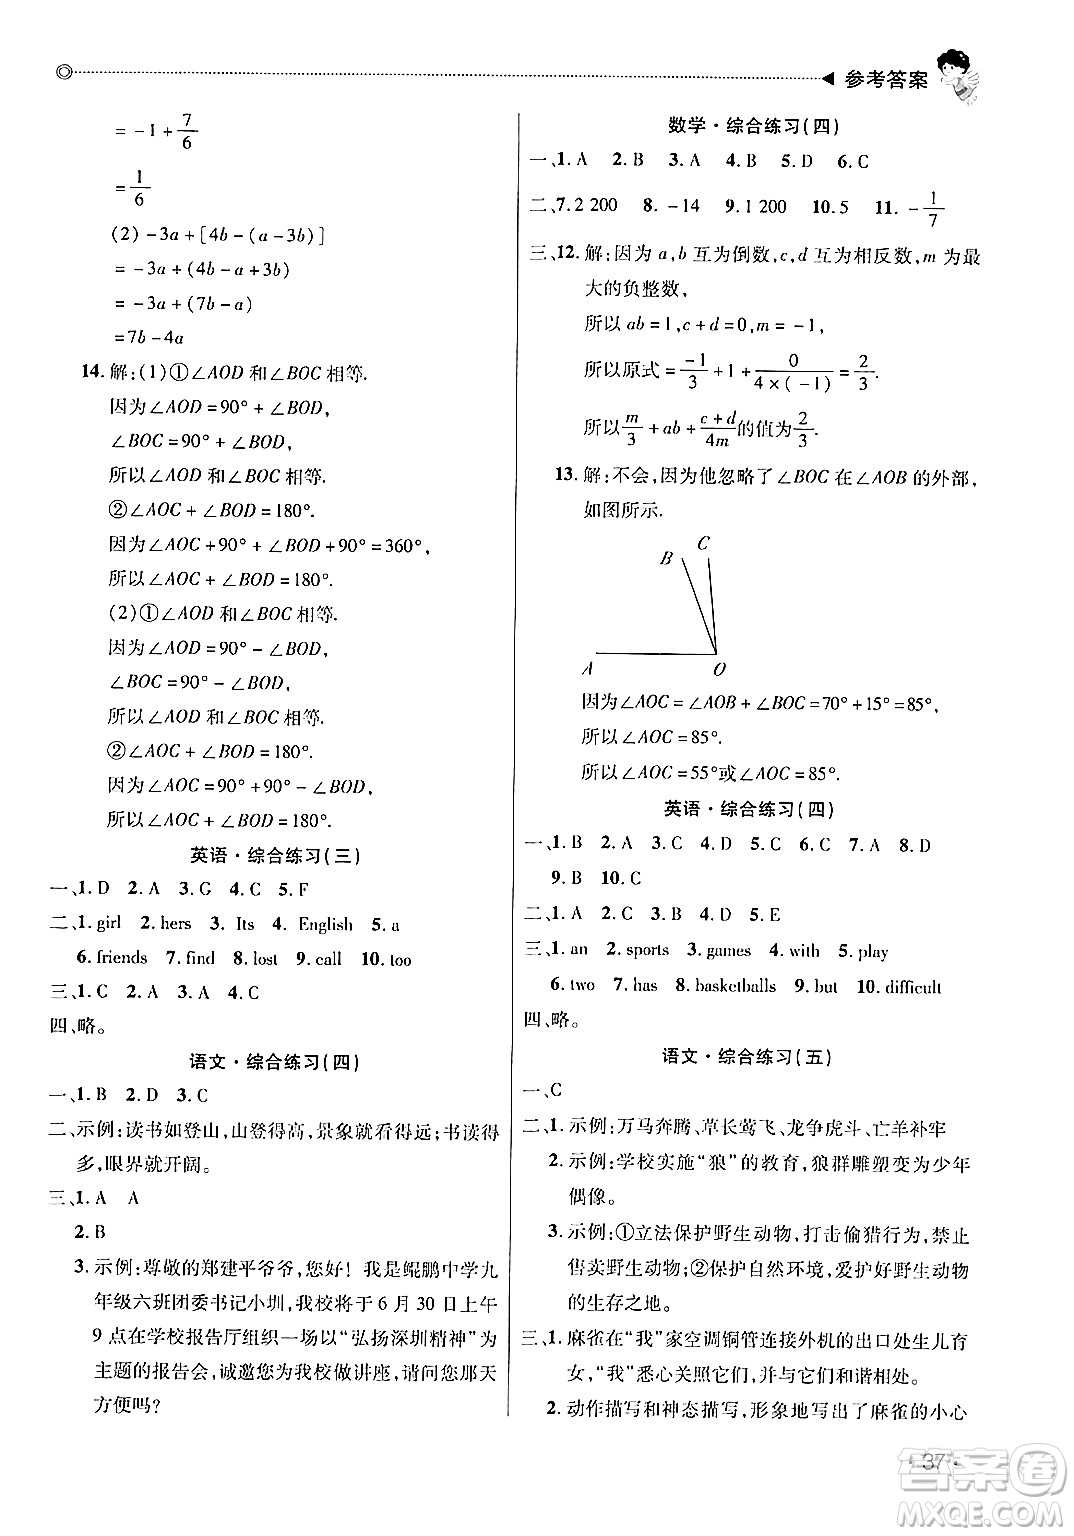 参考答案
= -1 + 7/6
= 1/6
(2) -3a+[4b-(a-3b)]
= -3a+(4b-a+3b)
= -3a+(7b-a)
=7b-4a
14. 解:(1)①∠AOD 和∠BOC 相等.
因为∠AOD=90°+∠BOD,
∠BOC=90°+∠BOD,
所以∠AOD 和∠BOC 相等.
②∠AOC+∠BOD=180°.
因为∠AOC+90°+∠BOD+90°=360°,
所以∠AOC+∠BOD=180°.
(2)①∠AOD 和∠BOC 相等.
因为∠AOD=90°-∠BOD,
∠BOC=90°-∠BOD,
所以∠AOD 和∠BOC 相等.
②∠AOC+∠BOD=180°.
因为∠AOC=90°+90°-∠BOD,
所以∠AOC+∠BOD=180°.
英语·综合练习(三)
一、1. D 2. A 3. G 4. C 5. F
二、1. girl 2. hers 3. Its 4. English 5. a
6. friends 7. find 8. lost 9. call 10. too
三、1. C 2. A 3. A 4. C
四、略。
语文·综合练习(四)
一、1. B 2. D 3. C
二、示例:读书如登山,山登得高,景象就看得远;书读得
多,眼界就开阔。
三、1. A A
2. B
3. 示例:尊敬的郑建平爷爷,您好! 我是鲲鹏中学九
年级六班团委书记小圳,我校将于 6 月 30 日上午
9 点在学校报告厅组织一场以“弘扬深圳精神”为
主题的报告会,诚邀您为我校做讲座,请问您那天
方便吗?
数学·综合练习(四)
一、1. A 2. B 3. A 4. B 5. D 6. C
二、7. 2 200 8. -14 9. 1 200 10. 5 11. -1/7
三、12. 解:因为 a,b 互为倒数,c,d 互为相反数,m 为最
大的负整数,
所以 ab=1,c+d=0,m=-1,
所以原式=-1/3+1+0/(4×(-1))=2/3.
所以m/3+ab+(c+d)/4m的值为2/3.
13. 解:不会,因为他忽略了∠BOC 在∠AOB 的外部,
如图所示.
C
B
A O
因为∠AOC=∠AOB+∠BOC=70°+15°=85°,
所以∠AOC=85°.
所以∠AOC=55°或∠AOC=85°.
英语·综合练习(四)
一、1. B 2. A 3. C 4. D 5. C 6. C 7. A 8. D
9. B 10. C
二、1. A 2. C 3. B 4. D 5. E
三、1. an 2. sports 3. games 4. with 5. play
6. two 7. has 8. basketballs 9. but 10. difficult
四、略。
语文·综合练习(五)
一、C
二、1. 示例:万马奔腾、草长莺飞、龙争虎斗、亡羊补牢
2. 示例:学校实施“狼”的教育,狼群雕塑变为少年
偶像。
3. 示例:①立法保护野生动物,打击偷猎行为,禁止
售卖野生动物;②保护自然环境,爱护好野生动物
的生存之地。
三、1. 麻雀在“我”家空调铜管连接外机的出口处生儿育
女,“我”悉心关照它们,并与它们和谐相处。
2. 动作描写和神态描写,形象地写出了麻雀的小心
· 37 ·
答案圈
MXQE.COM